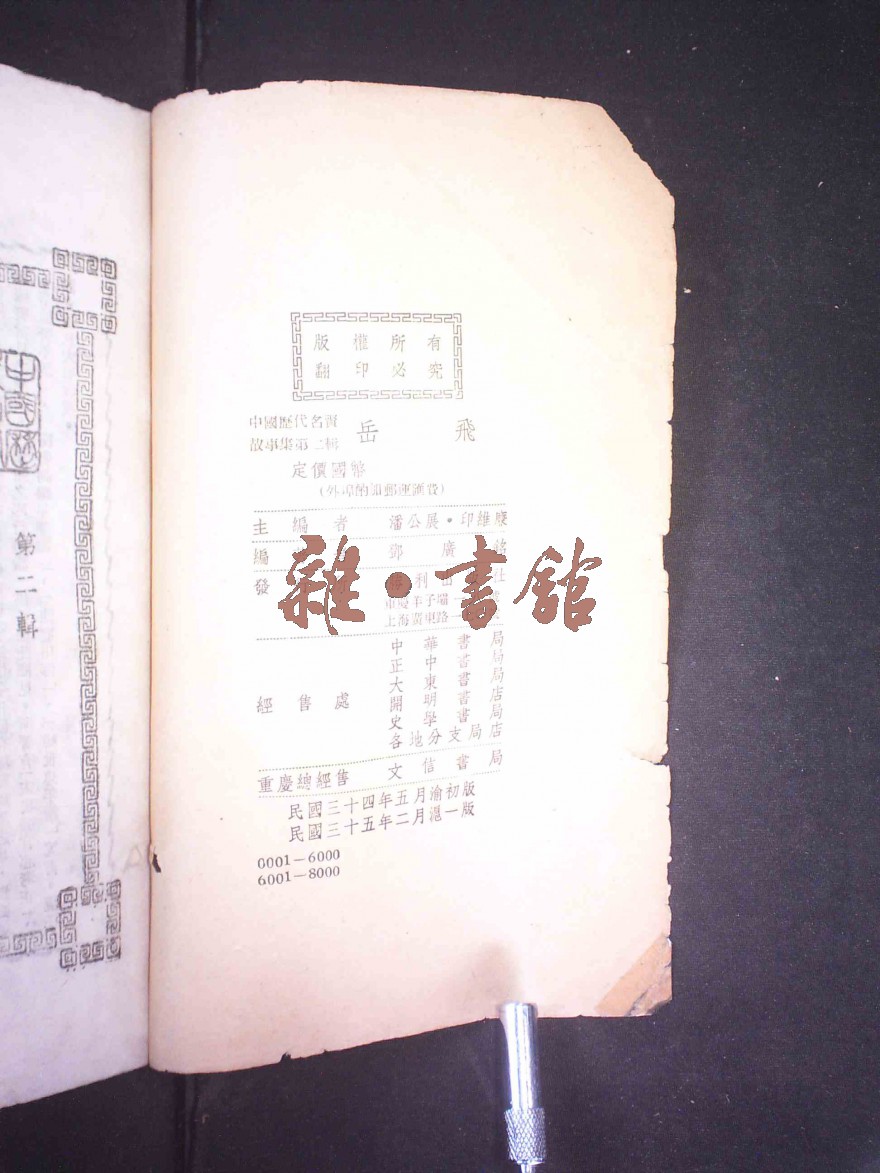 版權所有
翻印必究
中國歷代名賢
故事集第二輯
岳飛
定價國幣
(外埠酌加郵運匯費)
主編者 潘公展・印維廉
編 鄧廣銘
發 利 社
重慶羊子壩一
上海廣東路一
經售處
中華書局
正中書局
大東書局
開明書店
史學書局
各地分支局店
重慶總經售 文信書局
民國三十四年五月渝初版
民國三十五年二月滬一版
0001—6000
6001—8000
雜・書館
中國歷
第二輯